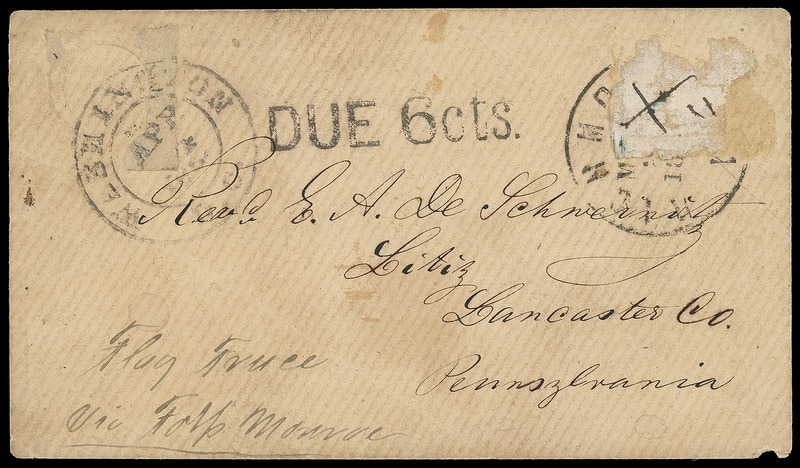 WASHINGTON
APR
DUE 6cts.
Revd. E. A. De Schweinitz
Litiz
Lancaster Co.
Pennszlvania
Flag Truce
via Fort Monroe